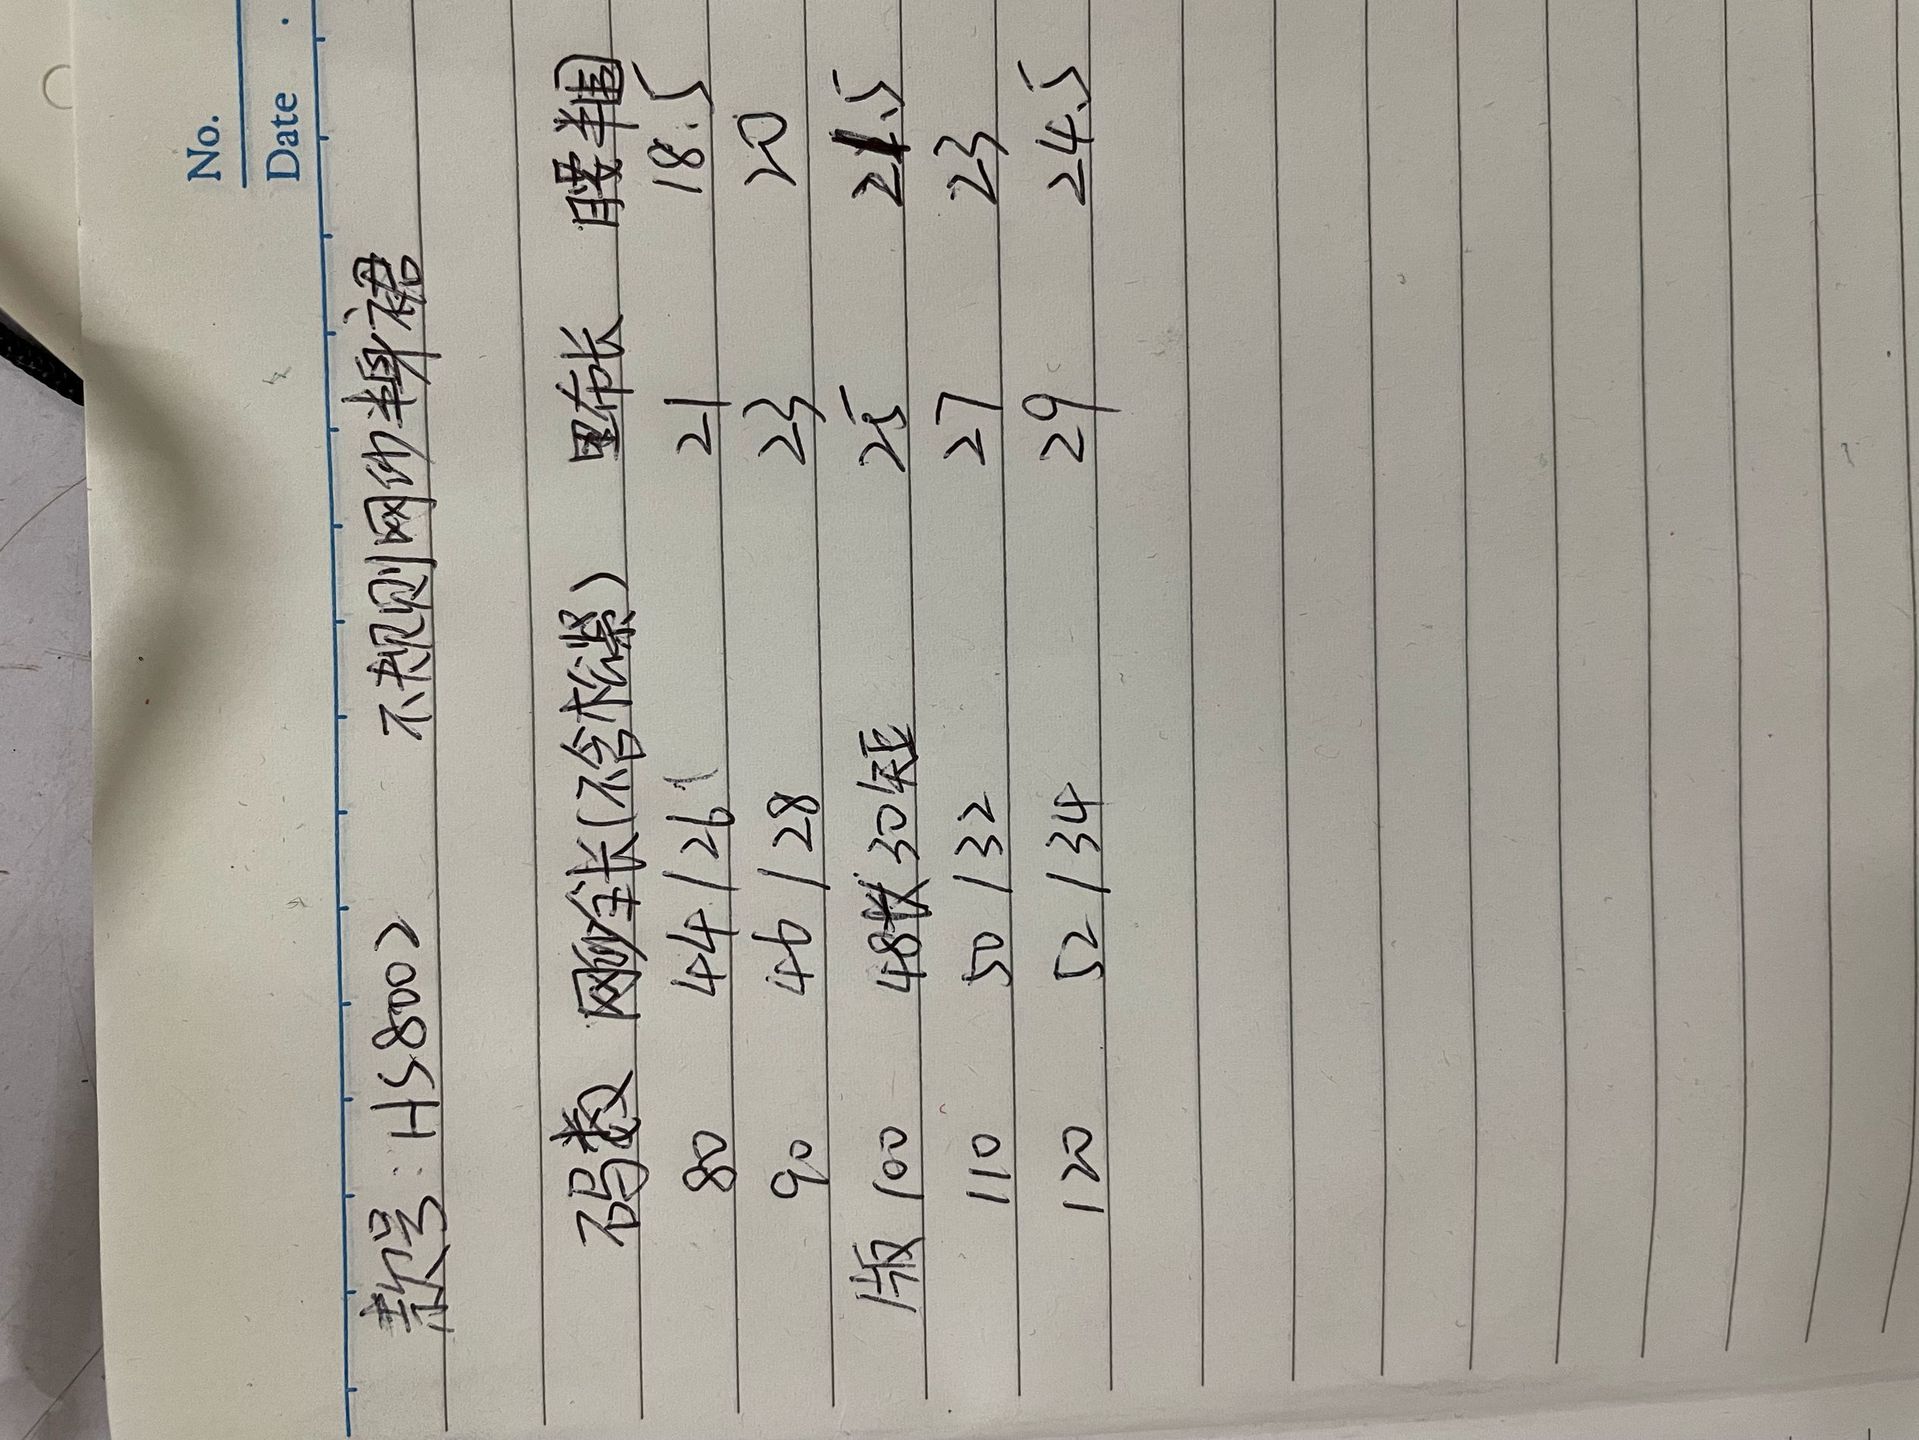 No.
Date
款号：HS8002 不规则网纱半身裙
码数 网纱全长(不含松紧) 里布长 腰半围
80 44/26 21 18.5
90 46/28 23 20
版 100 48长30短 25 21.5
110 50/32 27 23
120 52/34 29 24.5